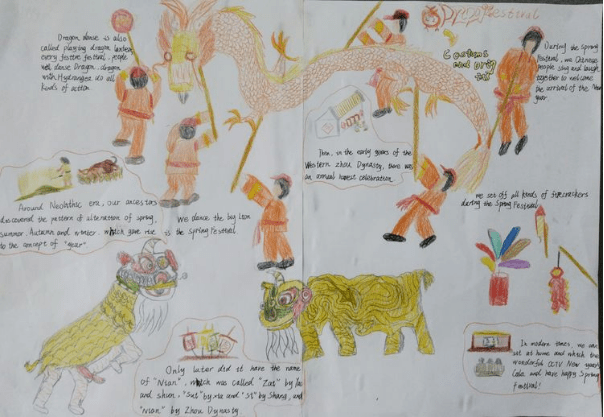 Dragon dance is also
called playing dragon lantern
every festive festival, people
will dance Dragon. dragon
with Hydrangea do all
kinds of action
Spring Festival
Customs
and Orig
During the Spring
Festival, we Chinese
people sing and laugh
together to welcome
the arrival of the New
year
Then, in the early years of the
Western Zhou Dynasty, there was
an annual harvest celebration.
Around Neolithic era, our ancestors
discovered the pattern of alternation of spring,
summer, Autumn and winter, which gave rise
to the concept of "year"
We dance the big Lion
is the Spring Festival
we set off all kinds of firecrackers
during the Spring Festival
Only later did it have the name
of "Nian", which was called "Zai" by
and shun, "Sui" by xia and "Si" by Shang, and
"nian" by Zhou Dynasty.
In modern times, we can
sit at home and which the
wonderful CCTV New year's
Gala and have happy Spring
Festival!